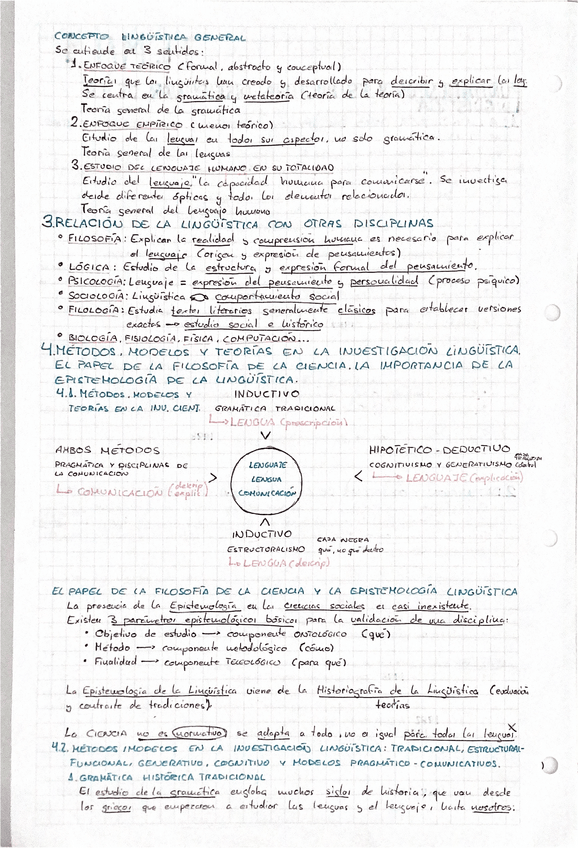 CONCEPTO LINGÜÍSTICA GENERAL
Se entiende en 3 sentidos:
1. ENFOQUE TEÓRICO (Formal, abstracto y conceptual)
Teorías que los lingüistas han creado y desarrollado para describir y explicar las leg
Se centra en la gramática y metateoría (teoría de la teoría)
Teoría general de la gramática
2. ENFOQUE EMPÍRICO (menos teórico)
Estudio de las lenguas en todos sus aspectos, no solo gramática.
Teoría general de las lenguas
3. ESTUDIO DEL LENGUAJE HUMANO EN SU TOTALIDAD
Estudio del lenguaje "la capacidad humana para comunicarse". Se investiga
desde diferentes ópticas y todos los elementos relacionados.
Teoría general del lenguaje humano
3. RELACIÓN DE LA LINGÜÍSTICA CON OTRAS DISCIPLINAS
° FILOSOFÍA: Explicar la realidad y comprensión humana es necesario para explicar
el lenguaje (origen y expresión de pensamientos)
° LÓGICA: Estudio de la estructura y expresión formal del pensamiento.
° PSICOLOGÍA: Lenguaje = expresión del pensamiento y personalidad (proceso psíquico)
° SOCIOLOGÍA: Lingüística ⟷ comportamiento social
° FILOLOGÍA: Estudia textos literarios generalmente clásicos para establecer versiones
exactas → estudio social e histórico
° BIOLOGÍA, FISIOLOGÍA, FÍSICA, COMPUTACIÓN...
4. MÉTODOS, MODELOS Y TEORÍAS EN LA INVESTIGACIÓN LINGÜÍSTICA.
EL PAPEL DE LA FILOSOFÍA DE LA CIENCIA. LA IMPORTANCIA DE LA
EPISTEMOLOGÍA DE LA LINGÜÍSTICA.
4.1. MÉTODOS, MODELOS Y
TEORÍAS EN LA INV. CIENT.
INDUCTIVO
GRAMÁTICA TRADICIONAL
↳ LENGUA (prescripción)
AMBOS MÉTODOS
PRAGMÁTICA Y DISCIPLINAS DE
LA COMUNICACIÓN
↳ COMUNICACIÓN (descrip explic)
LENGUAJE
LENGUA
COMUNICACIÓN
HIPOTÉTICO - DEDUCTIVO
COGNITIVISMO Y GENERATIVISMO
↳ LENGUAJE (explicación)
INDUCTIVO
ESTRUCTURALISMO
CAJA NEGRA
qué, no qué dentro
↳ LENGUA (descrip)
EL PAPEL DE LA FILOSOFÍA DE LA CIENCIA Y LA EPISTEMOLOGÍA LINGÜÍSTICA
La presencia de la Epistemología en las ciencias sociales es casi inexistente.
Existen 3 parámetros epistemológicos básicos para la validación de una disciplina:
• Objetivo de estudio → componente ONTOLÓGICO (qué)
• Método → componente metodológico (cómo)
• Finalidad → componente TELEOLÓGICO (para qué)
La Epistemología de la Lingüística viene de la Historiografía de la Lingüística (evolución
y contraste de tradiciones).
teorías
La CIENCIA no es normativa, se adapta a todo, no es igual para todas las lenguas
4.2. MÉTODOS/MODELOS EN LA INVESTIGACIÓN LINGÜÍSTICA: TRADICIONAL, ESTRUCTURAL-
FUNCIONAL, GENERATIVO, COGNITIVO Y MODELOS PRAGMÁTICO - COMUNICATIVOS.
1. GRAMÁTICA HISTÓRICA TRADICIONAL
El estudio de la gramática engloba muchos siglos de historia, que van desde
los griegos que empezaron a estudiar las lenguas y el lenguaje, hasta nosotros.